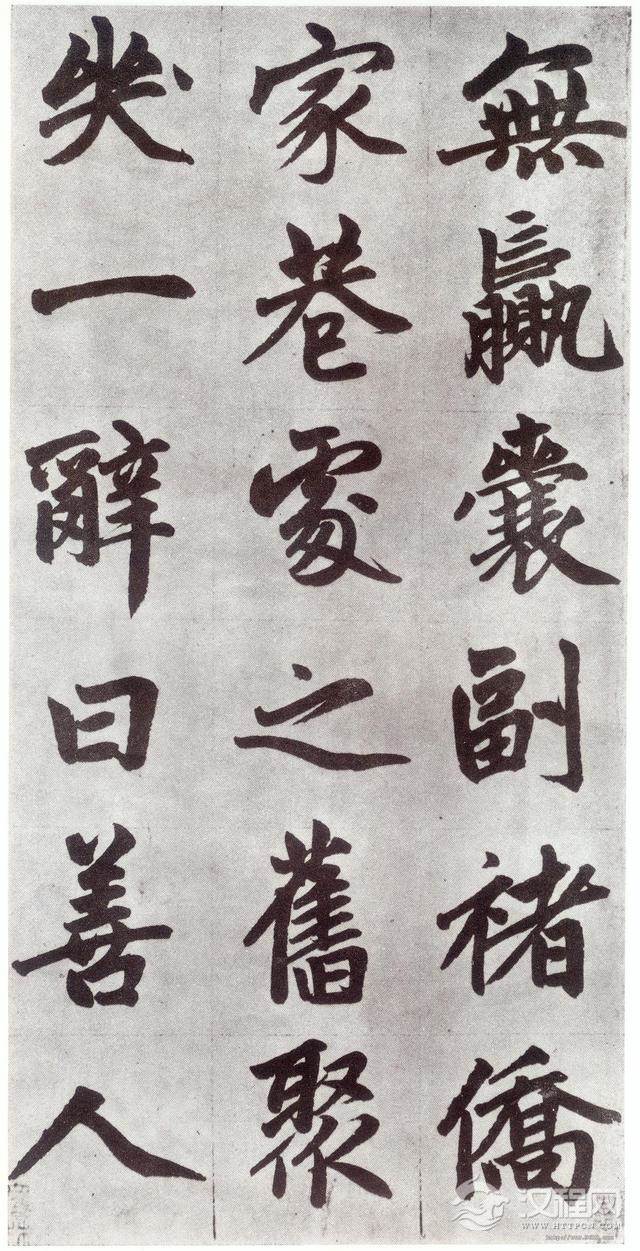 無贏囊副褚僑
家巷處之舊聚
哭一辭曰善人
汉程网
WWW.HTTPCN.COM